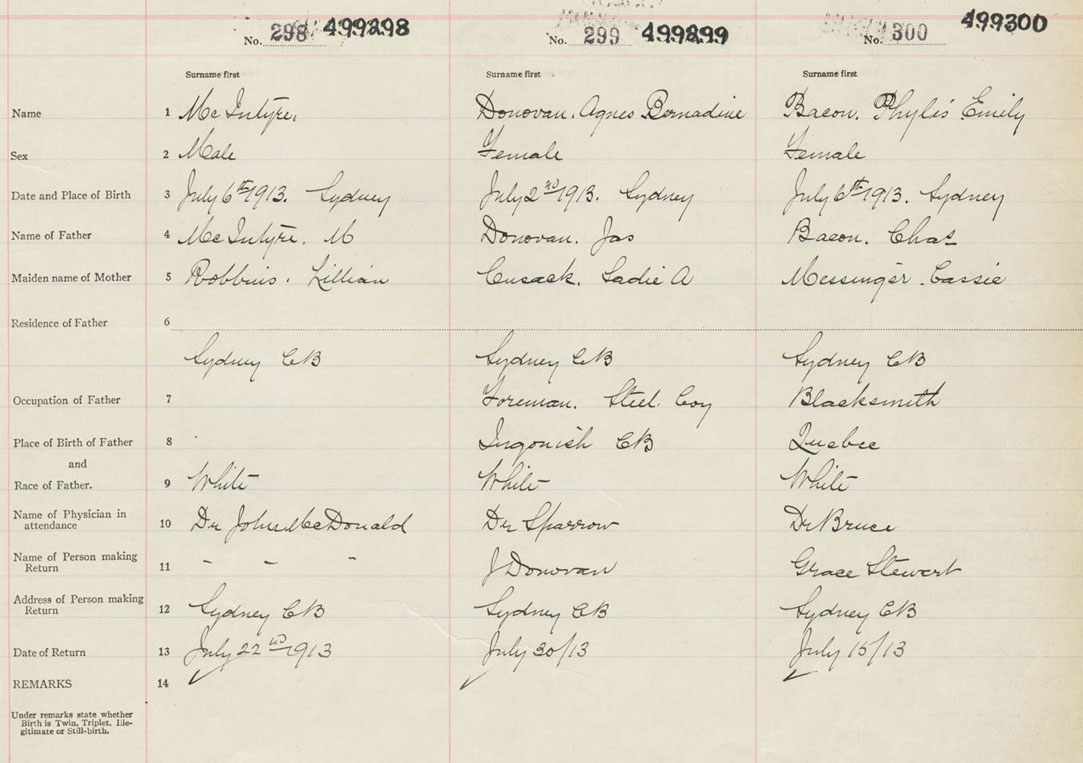 No. 298 499298 No. 299 499299 No. 300 499300
Surname first Surname first Surname first
Name 1 McIntyre, Donovan. Agnes Bernadine Bacon. Phylis Emily
Sex 2 Male Female Female
Date and Place of Birth 3 July 6th 1913. Sydney July 2nd 1913. Sydney July 6th 1913. Sydney
Name of Father 4 McIntyre. M Donovan. Jas Bacon. Chas
Maiden name of Mother 5 Robbins. Lillian Cusack. Sadie A Messinger. Cassie
Residence of Father 6
Sydney CB Sydney CB Sydney CB
Occupation of Father 7 Foreman. Steel. Coy Blacksmith
Place of Birth of Father 8 Ingonish CB Quebec
and
Race of Father. 9 White White White
Name of Physician in attendance 10 Dr John McDonald Dr Sparrow Dr Bruce
Name of Person making Return 11 " " " J Donovan Grace Stewart
Address of Person making Return 12 Sydney CB Sydney CB Sydney CB
Date of Return 13 July 22nd 1913 July 30/13 July 15/13
REMARKS 14
Under remarks state whether
Birth is Twin, Triplet, Ille-
gitimate or Still-birth.